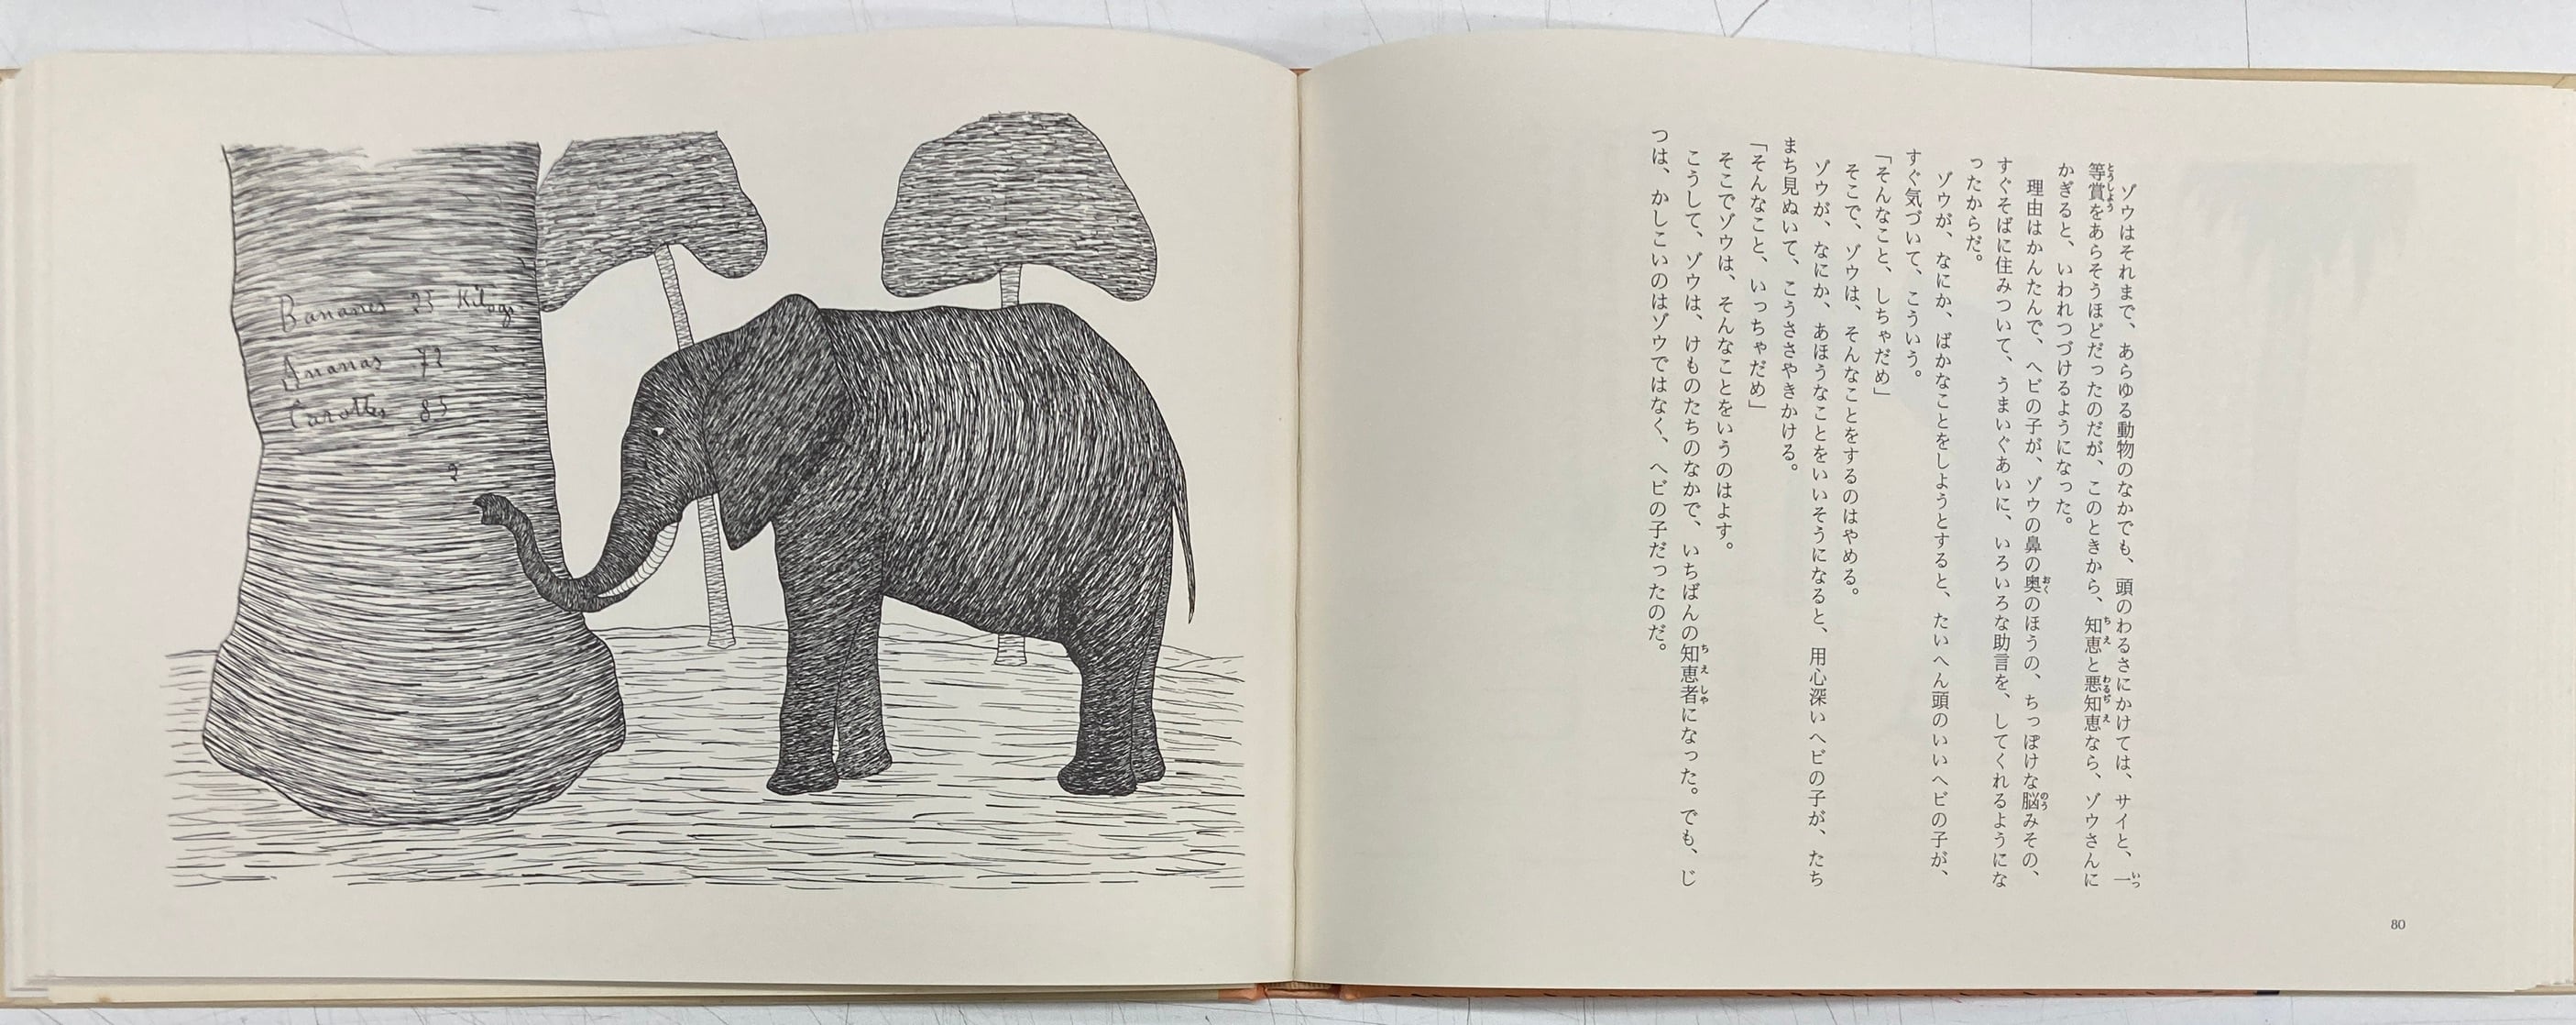 ゾウはそれまで、あらゆる動物のなかでも、頭のわるさにかけては、サイと、一
等賞をあらそうほどだったのだが、このときから、知恵と悪知恵なら、ゾウさんに
かぎると、いわれつづけるようになった。
理由はかんたんで、ヘビの子が、ゾウの鼻の奥のほうの、ちっぽけな脳みその、
すぐそばに住みついて、うまいぐあいに、いろいろな助言を、してくれるようにな
ったからだ。
ゾウが、なにか、ばかなことをしようとすると、たいへん頭のいいヘビの子が、
すぐ気づいて、こういう。
「そんなこと、しちゃだめ」
そこで、ゾウは、そんなことをするのはやめる。
ゾウが、なにか、あほうなことをいいそうになると、用心深いヘビの子が、たち
まち見ぬいて、こうささやきかける。
「そんなこと、いっちゃだめ」
そこでゾウは、そんなことをいうのはよす。
こうして、ゾウは、けものたちのなかで、いちばんの知恵者になった。でも、じ
つは、かしこいのはゾウではなく、ヘビの子だったのだ。
80
Bananes 25 Kilogs
Ananas 72
Carottes 85
?